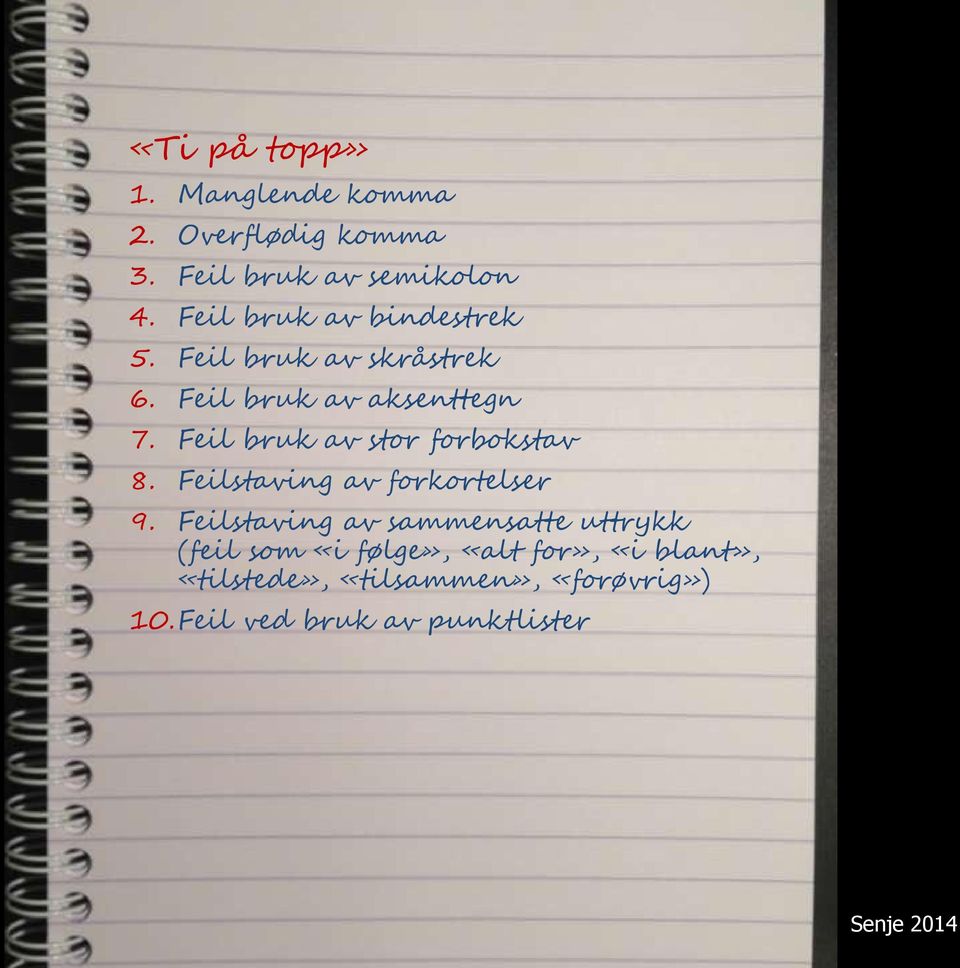 «Ti på topp»
1. Manglende komma
2. Overflødig komma
3. Feil bruk av semikolon
4. Feil bruk av bindestrek
5. Feil bruk av skråstrek
6. Feil bruk av aksenttegn
7. Feil bruk av stor forbokstav
8. Feilstaving av forkortelser
9. Feilstaving av sammensatte uttrykk
(feil som «i følge», «alt for», «i blant»,
«tilstede», «tilsammen», «forøvrig»)
10. Feil ved bruk av punktlister
Senje 2014